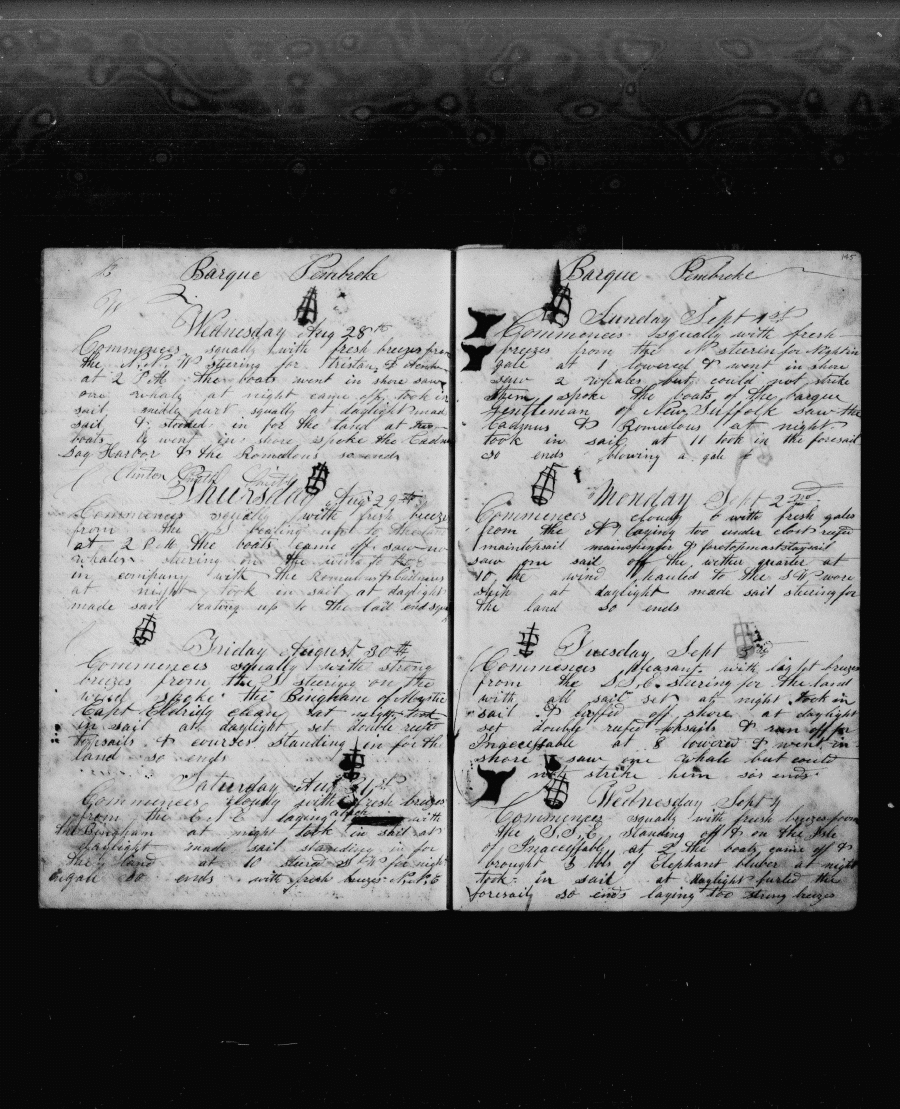 Barque Pembroke
Wednesday Aug 28th
Commences squally with fresh breezes from
the N.N.W steering for Tristan &
at 2 P.M the boats went in shore saw
one whale at night came off took in
sail middle part squally at daylight made
sail & stooded in for the land at
boats & went in shore spoke the Cadmus
Sag Harbor & the Romulous so ends
Clinton Smith
Thursday Aug 29th
Commences squally with fresh breezes
from the beating up to the
at 2 P.M the boats came off saw no
whales steering on the wind to the
in company with the Romulous & Cadmus
at night took in sail at daylight
made sail beating up to the land ends
Friday August 30th
Commences squally with strong
breezes from the S steering on the
wind spoke the Bingham of Mystic
Capt Eldrids clean at night took
in sail at daylight set double reeft
topsails & courses standing in for the
land so ends
Saturday Aug 31st
Commences cloudy with fresh breezes
from the E.N.E laying aback with
the Bingham at night took in sail at
daylight made sail standing in for
the land at 10 for night
ingale so ends with fresh breezes N.N.E
195
Barque Pembroke
Sunday Sept 1st
Commences squally with fresh
breezes from the N steerin for Nightin
gale at 1 lowered & went in shore
saw 2 whales but could not strike
them spoke the boats of the barque
Gentleman of New Suffolk saw the
Cadmus & Romulous at night
took in sail at 11 took in the foresail
so ends blowing a gale
Monday Sept 2nd
Commences cloudy & with fresh gales
from the N laying too under close reefed
maintopsail mainspencer & foretopmaststaysail
saw one sail off the wether quarter at
10 the wind hauled to the S.W wore
ship at daylight made sail steering for
the land so ends
Tuesday Sept 3rd
Commences pleasant with light breezes
from the S.S.E. steering for the land
with all sail set at night took in
sail & luffed off shore at daylight
set double reefed topsails & run off for
Inaccessable at 8 lowered & went in
shore saw one whale but could
not strike him so ends
Wednesday Sept 4
Commences squally with fresh breezes from
the S.S.E, standing off & on the Isle
of Inaccessable at 2 the boats came off &
brought 3 bbls of Elephant bluber at night
took in sail at daylight furled the
foresail so ends laying too strong breezes